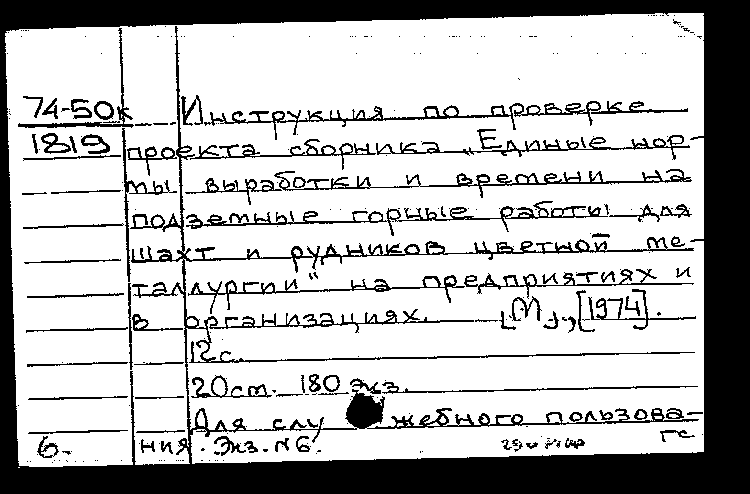 74-50к Инструкция по проверке
1819 проекта сборника „Единые нор-
мы выработки и времени на
подземные горные работы для
шахт и рудников цветной ме-
таллургии“ на предприятиях и
в организациях. [М.], [1974].
12с.
20см. 180 экз.
Для служебного пользова-
6. ния. Экз. N6. гс